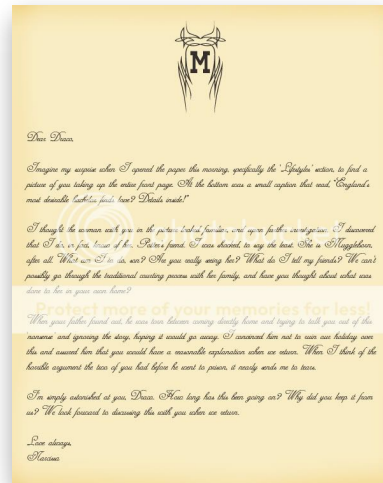 M
Dear Draco,
Imagine my surprise when I opened the paper this morning, specifically the 'Lifestyles' section, to find a
picture of you taking up the entire front page. At the bottom was a small caption that read, "England's
most desirable bachelor finds love? Details inside!"
I thought the woman with you in the picture looked familiar, and upon further investigation, I discovered
that I do, in fact, know of her. Potter's friend. I was shocked, to say the least. She is Muggleborn,
after all. What am I to do, son? Are you really seeing her? What do I tell my friends? We can't
possibly go through the traditional courting process with her family, and have you thought about what was
done to her in your own home?
Protect more of your memories for less!
When your father found out, he was torn between coming directly home and trying to talk you out of this
nonsense and ignoring the story, hoping it would go away. I convinced him not to ruin our holiday over
this and assured him that you would have a reasonable explanation when we return. When I think of the
horrible argument the two of you had before he went to prison, it nearly sends me to tears.
I'm simply astonished at you, Draco. How long has this been going on? Why did you keep it from
us? We look forward to discussing this with you when we return.
Love always,
Narcissa